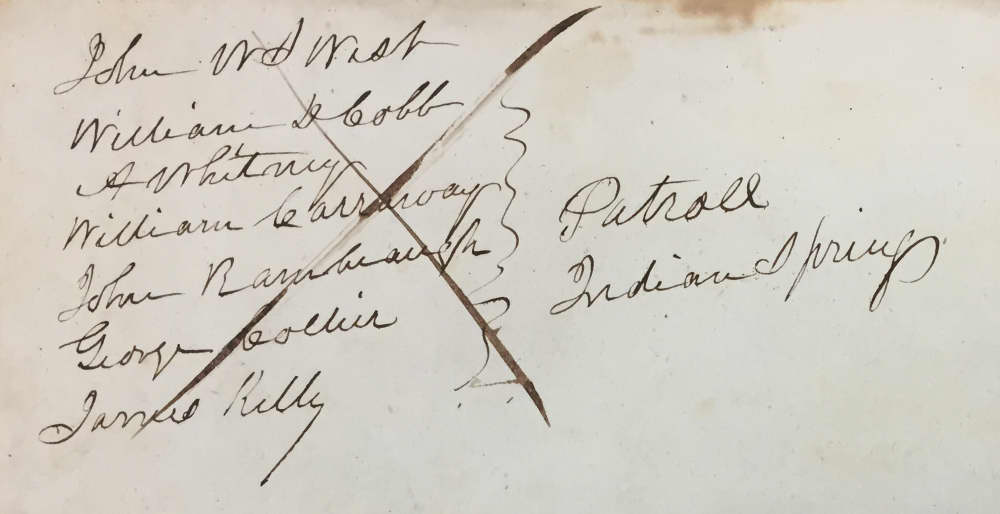 John W S West
William D Cobb
A Whitney
William Carraway
John Rambaugh
George Collier
James Kelly
Patroll
Indian Springs